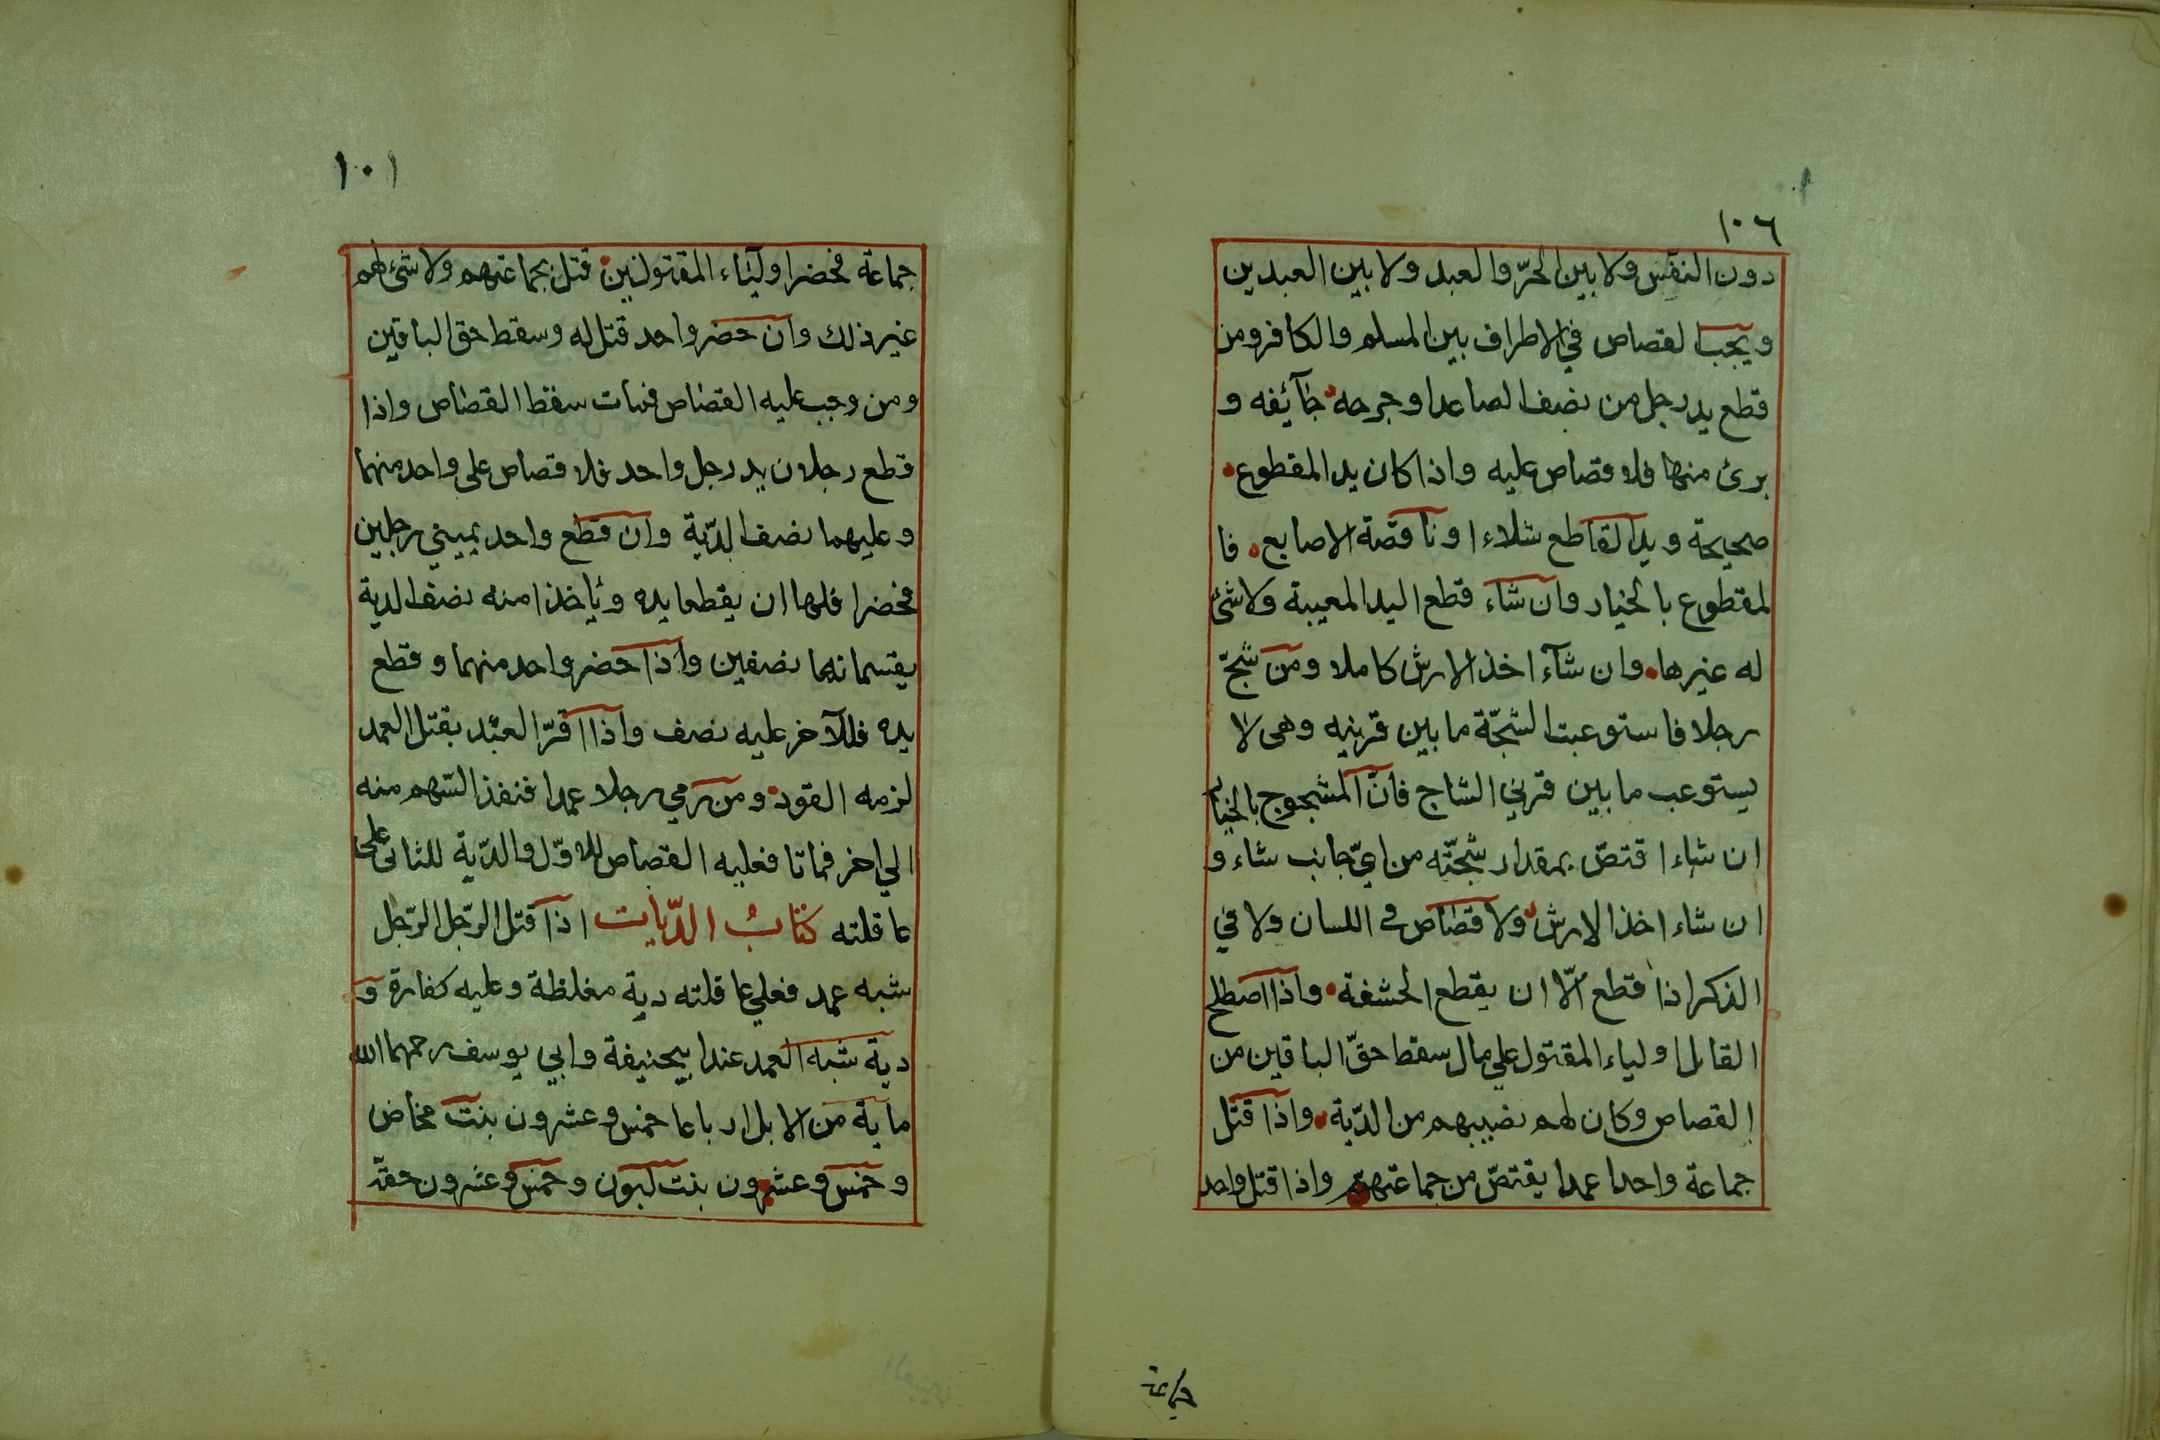 ١٠٦
دون النفس ولا بين الحرّ والعبد ولا بين العبدين
ويجب القصاص في الاطراف بين المسلم والكافر ومن
قطع يد رجل من نصف الصاعد او جرحه جآئفه و
برئ منها فلا قصاص عليه واذا كان يد المقطوع
صحيحة ويد القاطع شلاء او ناقصة الاصابع فا
لمقطوع بالخيار وان شاء قطع اليد المعيبة ولا شئ
له غيرها وان شآء اخذ الارش كاملا ومن شجّ
رجلا فاستوعبت الشجّة ما بين قرنيه وهى لا
يستوعب ما بين قرني الشاج فانّ المشجوج بالخيار
ان شاء اقتصّ بمقدار شجّته من ايّ جانب شاء و
ان شاء اخذ الارش ولا قصاص في اللسان ولا في
الذكر اذا قطع الّا ان يقطع الحشفة واذا اصطلح
القاتل اولياء المقتول علي مال سقط حقّ الباقين من
القصاص وكان لهم نصيبهم من الدّية واذا قتل
جماعة واحدا عمدا يقتصّ من جماعتهم واذا قتل واحد
جماعة
١٠١
جماعة فحضر اوليآء المقتولين قتل بجماعتهم ولا شئ لهم
غير ذلك وان حضر واحد قتل له وسقط حق الباقين
ومن وجب عليه القصاص فمات سقط القصاص واذا
قطع رجلان يد رجل واحد فلا قصاص على واحد منهما
وعليهما نصف الدّية وان قطع واحد يميني رجلين
فحضرا فلهما ان يقطعا يده ويأخذا منه نصف الدية
يقتسمانها نصفين واذا حضر واحد منهما وقطع
يده فللآخر عليه نصف واذا اقرّ العبد بقتل العمد
لزمه القود ومن رمي رجلا عمدا فنفذ السّهم منه
الي اخر فماتا فعليه القصاص للاوّل والدّية للثانى على
عاقلته كتاب الدّيات اذا قتل الرّجل الرّجل
شبه عمد فعلي عاقلته دية مغلظة وعليه كفارة و
دية شبه العمد عند ابيحنيفة وابي يوسف رحمهما الله
ماية من الابل ارباعا خمس وعشرون بنت مخاض
وخمس وعشرون بنت لبون وخمس وعشرون حقة